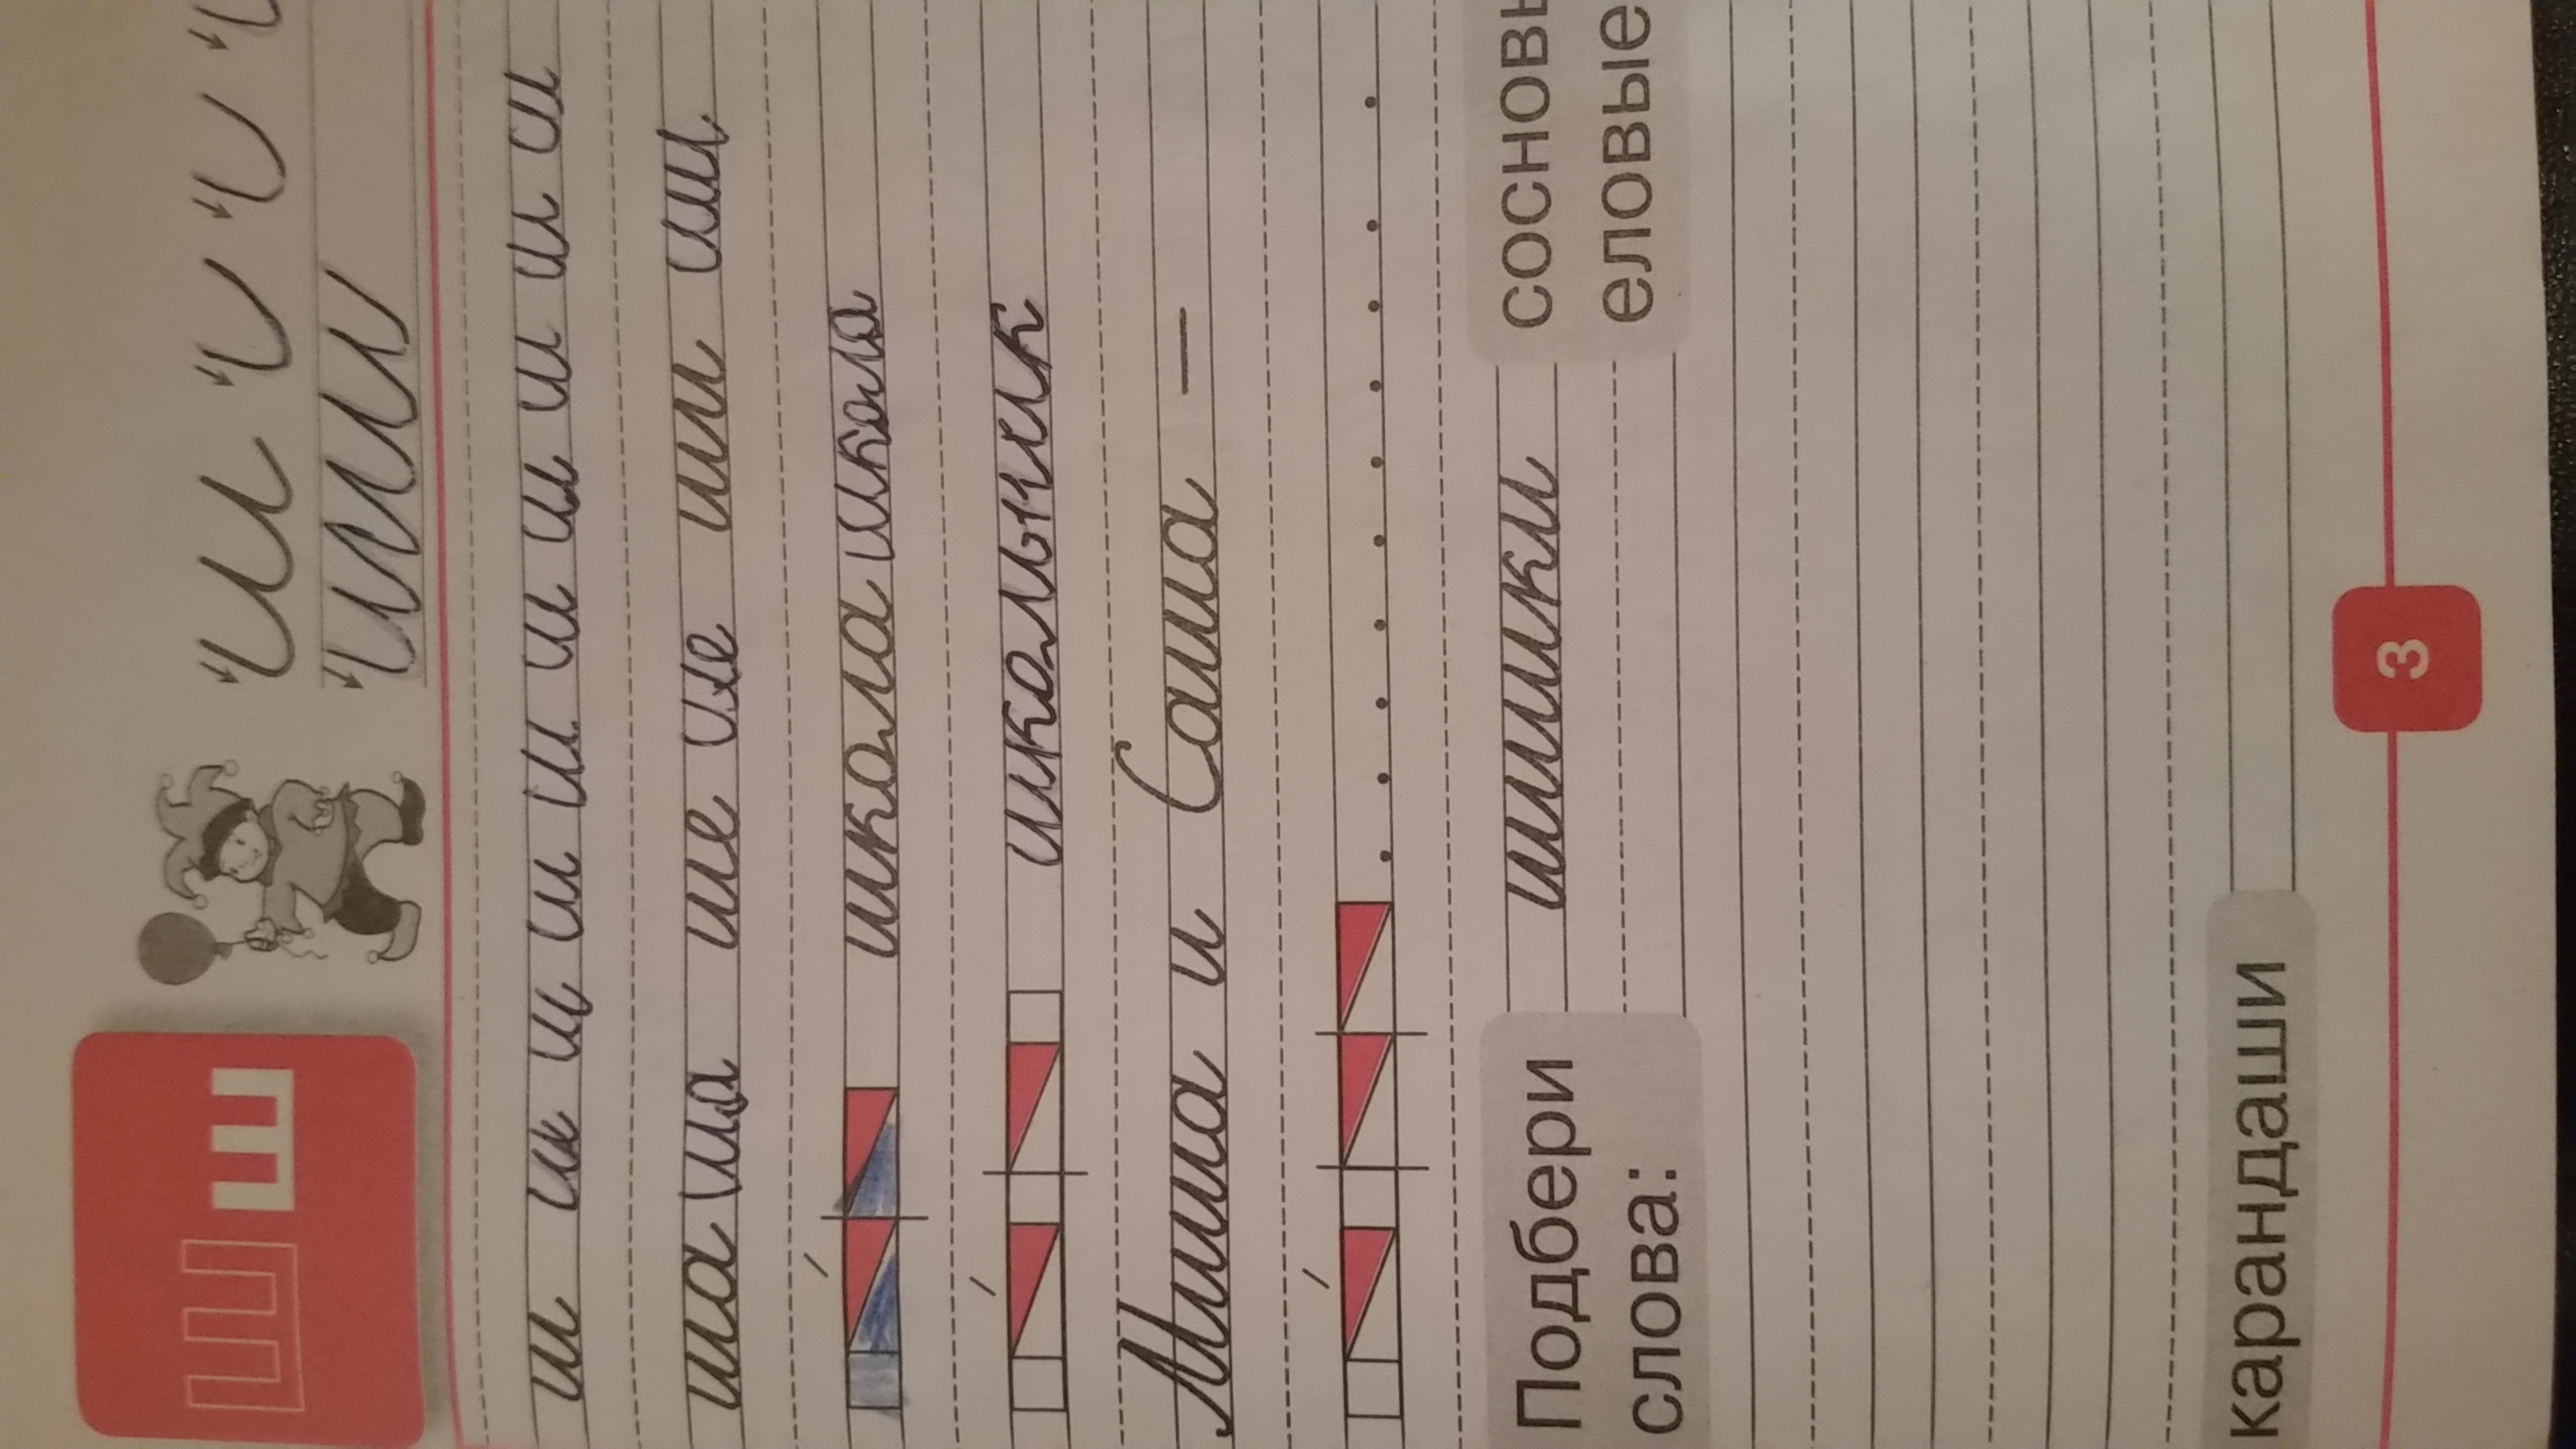 Ш ш
ш ш ш ш ш ш ш ш ш ш
ша ша ше ше ши ши
школа школа
школьник
Миша и Саша —
Подбери слова: шишки сосновы
еловые
карандаши
3